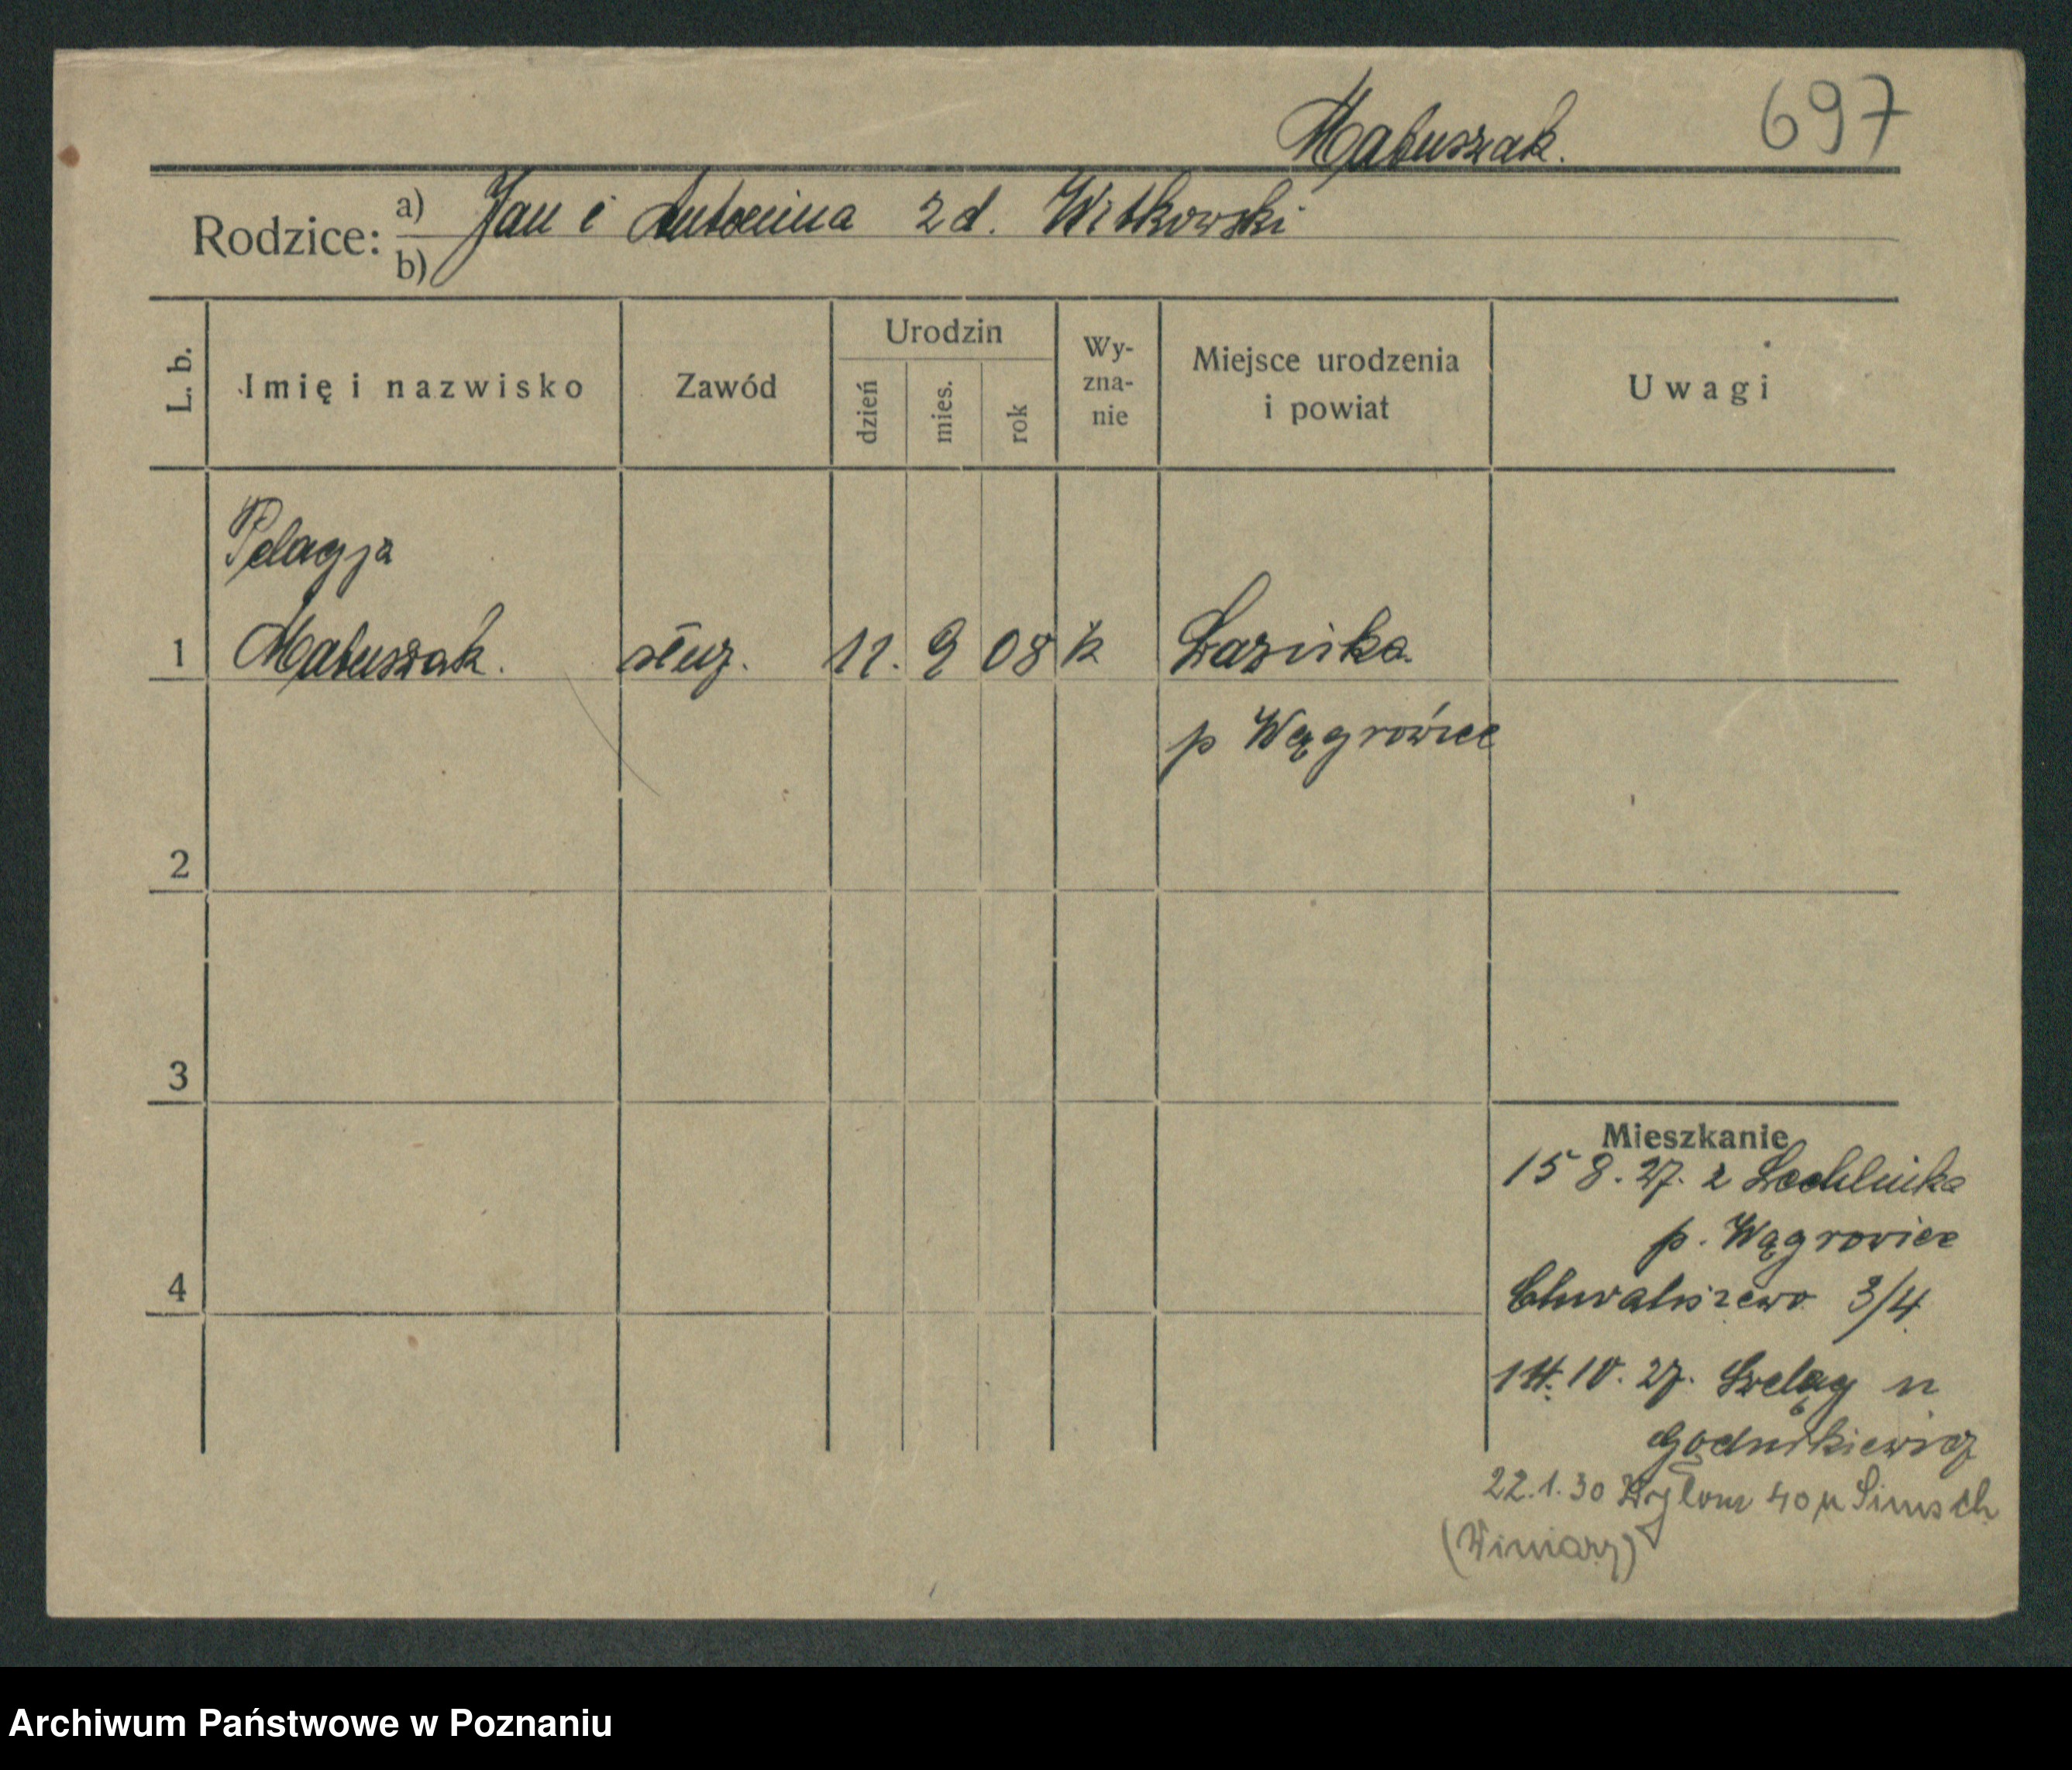 Matuszak. 697
Rodzice: a) Jan i Antonina zd. Witkowski
b)
L. b. Imię i nazwisko Zawód Urodzin dzień mies. rok Wy-zna-nie Miejsce urodzenia i powiat Uwagi
Pelagja
1 Matuszak. służ. 11. 9 08 k Łaziska
p Wągrówiec
2
3
Mieszkanie
15 8. 27. z Łechlinka
p. Wągrowiec
4 Chwaliszewo 3/4
14. 10. 27. Szeląg u
22.1.30 40 u
(Winiary)
Archiwum Państwowe w Poznaniu